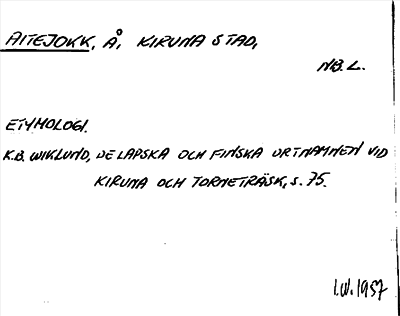 AITEJOKK, Å, KIRUNA STAD,
NB.L.
ETYMOLOGI.
K.B. WIKLUND, DE LAPSKA OCH FINSKA ORTNAMNEN VID
KIRUNA OCH TORNETRÄSK, S. 75.
I.W. 1957